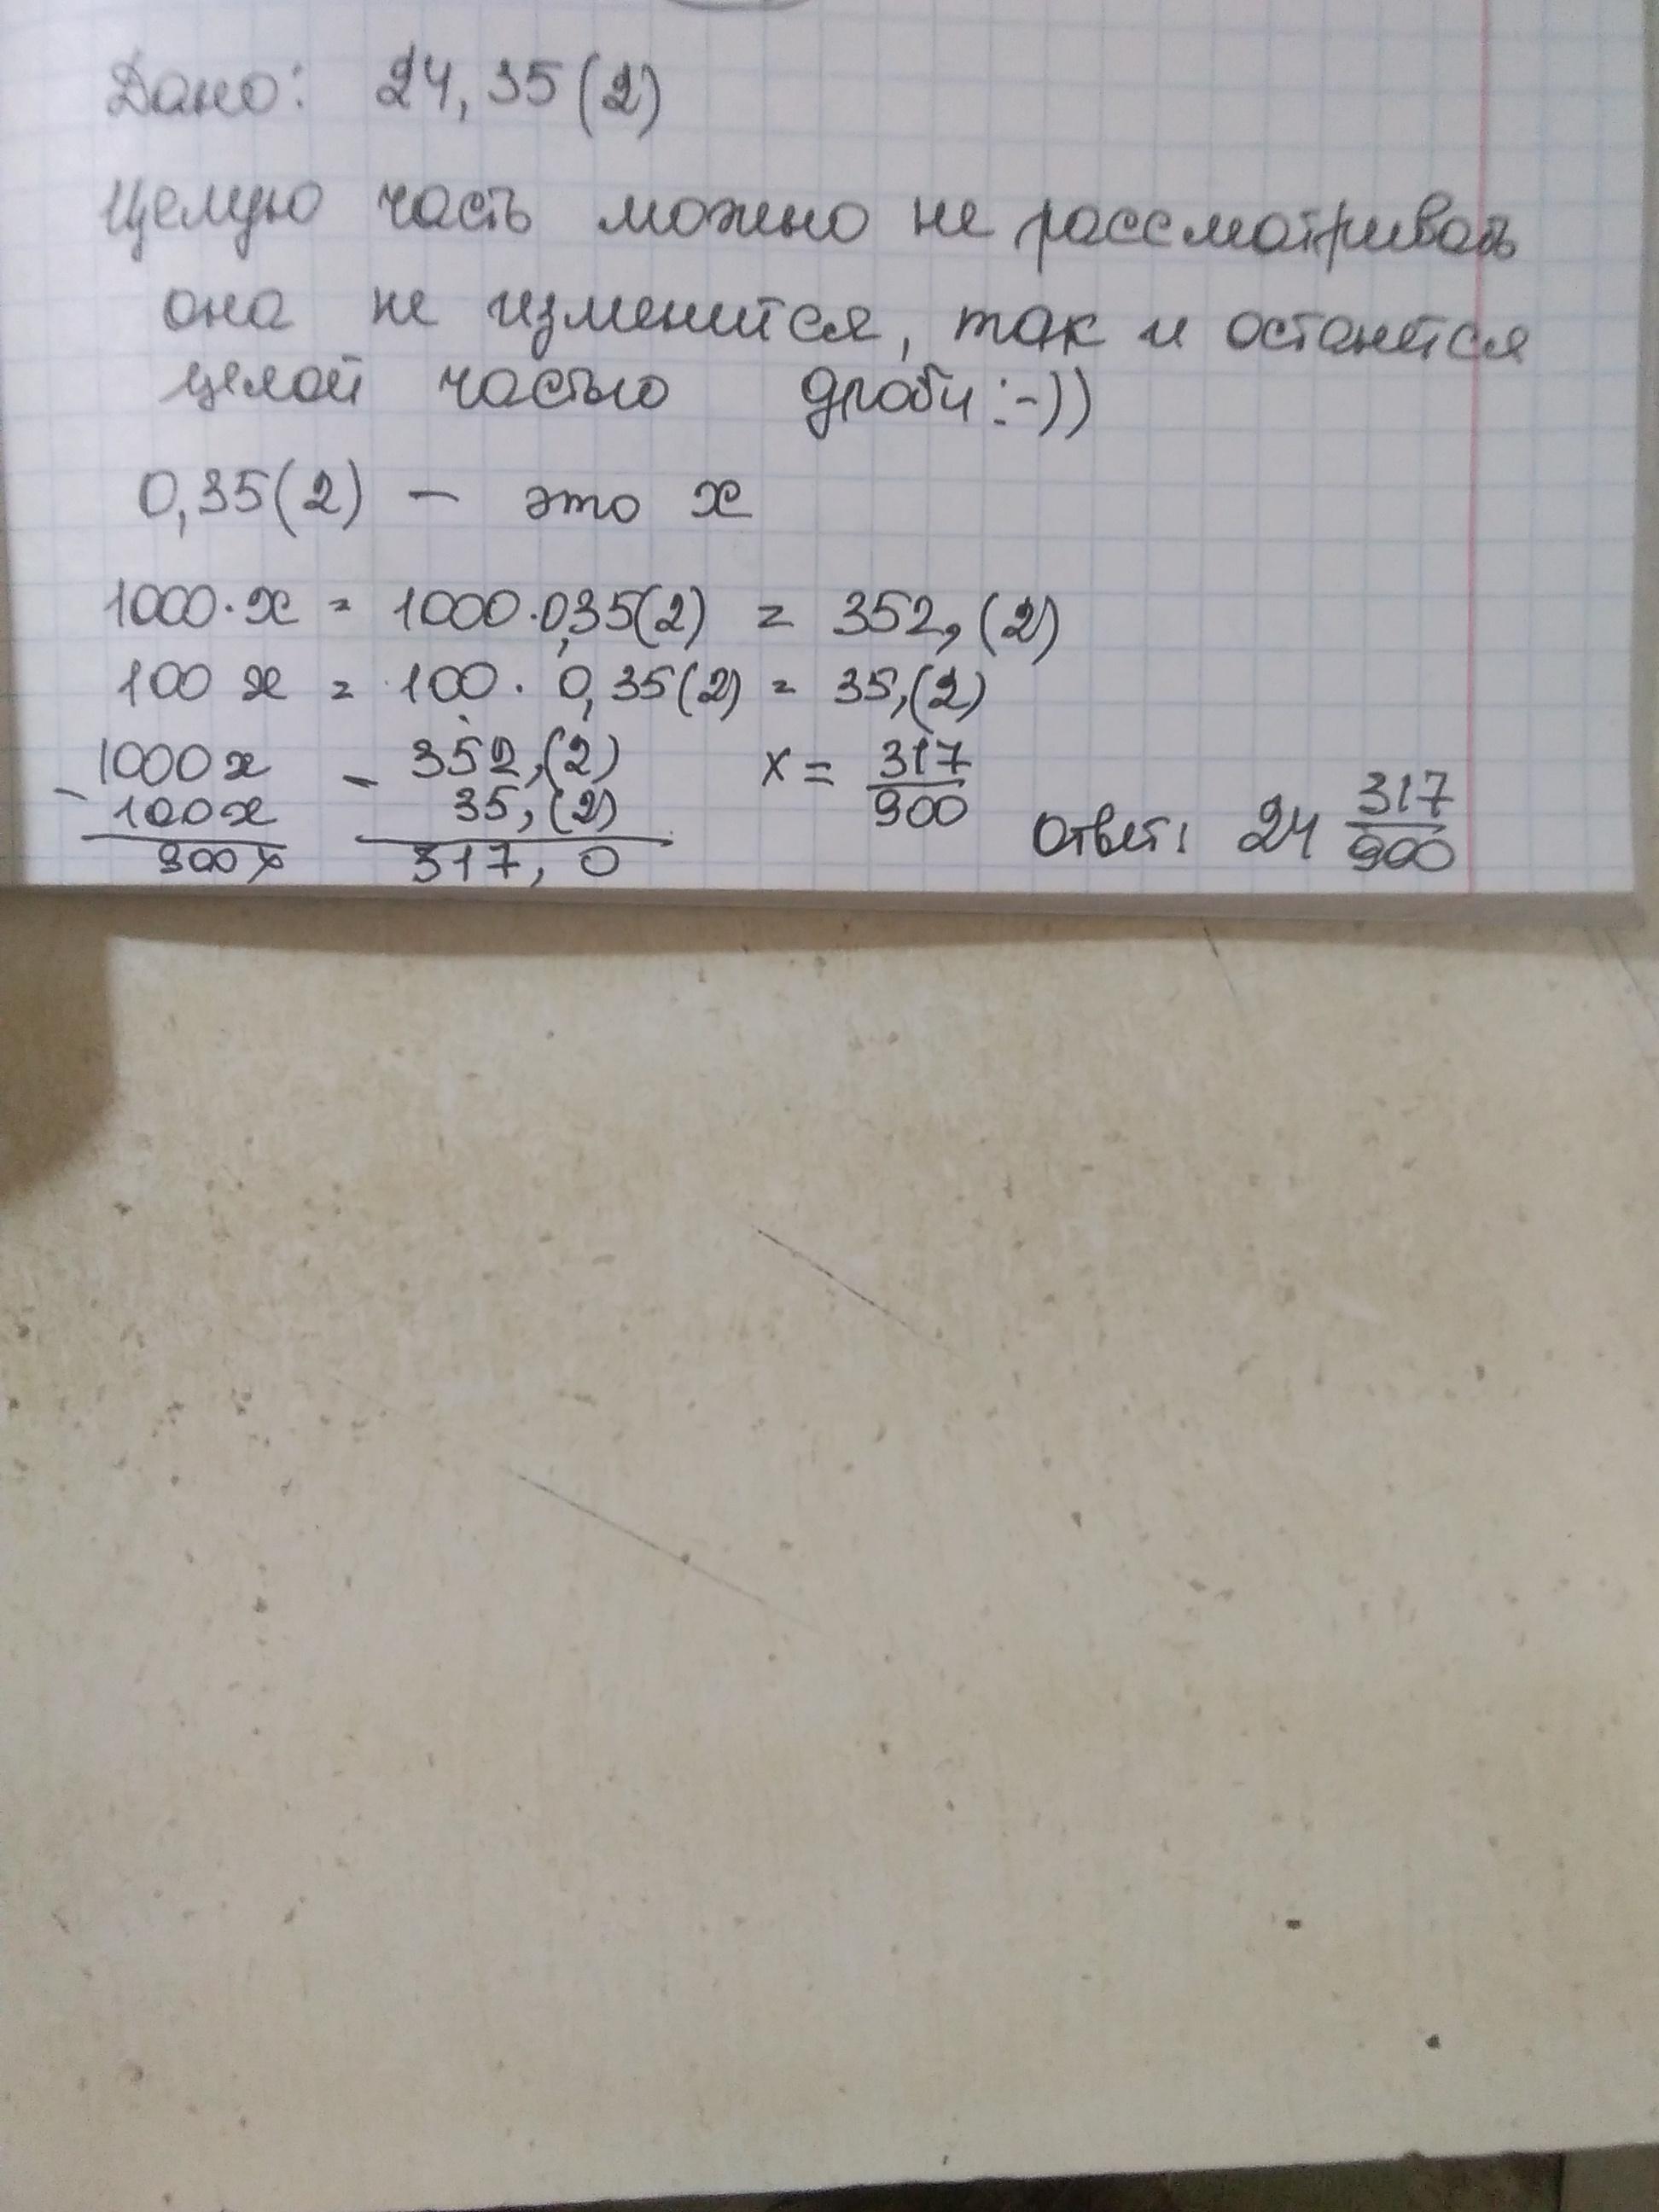 Дано: 24,35(2)
Целую часть можно не рассматривать
она не изменится, так и останется
целой частью дроби:-))
0,35(2) – это x
1000·x = 1000·0,35(2) = 352,(2)
100 x = 100 · 0,35(2) = 35,(2)
1000x – 352,(2) x = 317/900
– 100x 35,(2) Ответ: 24 317/900
900x 317,0